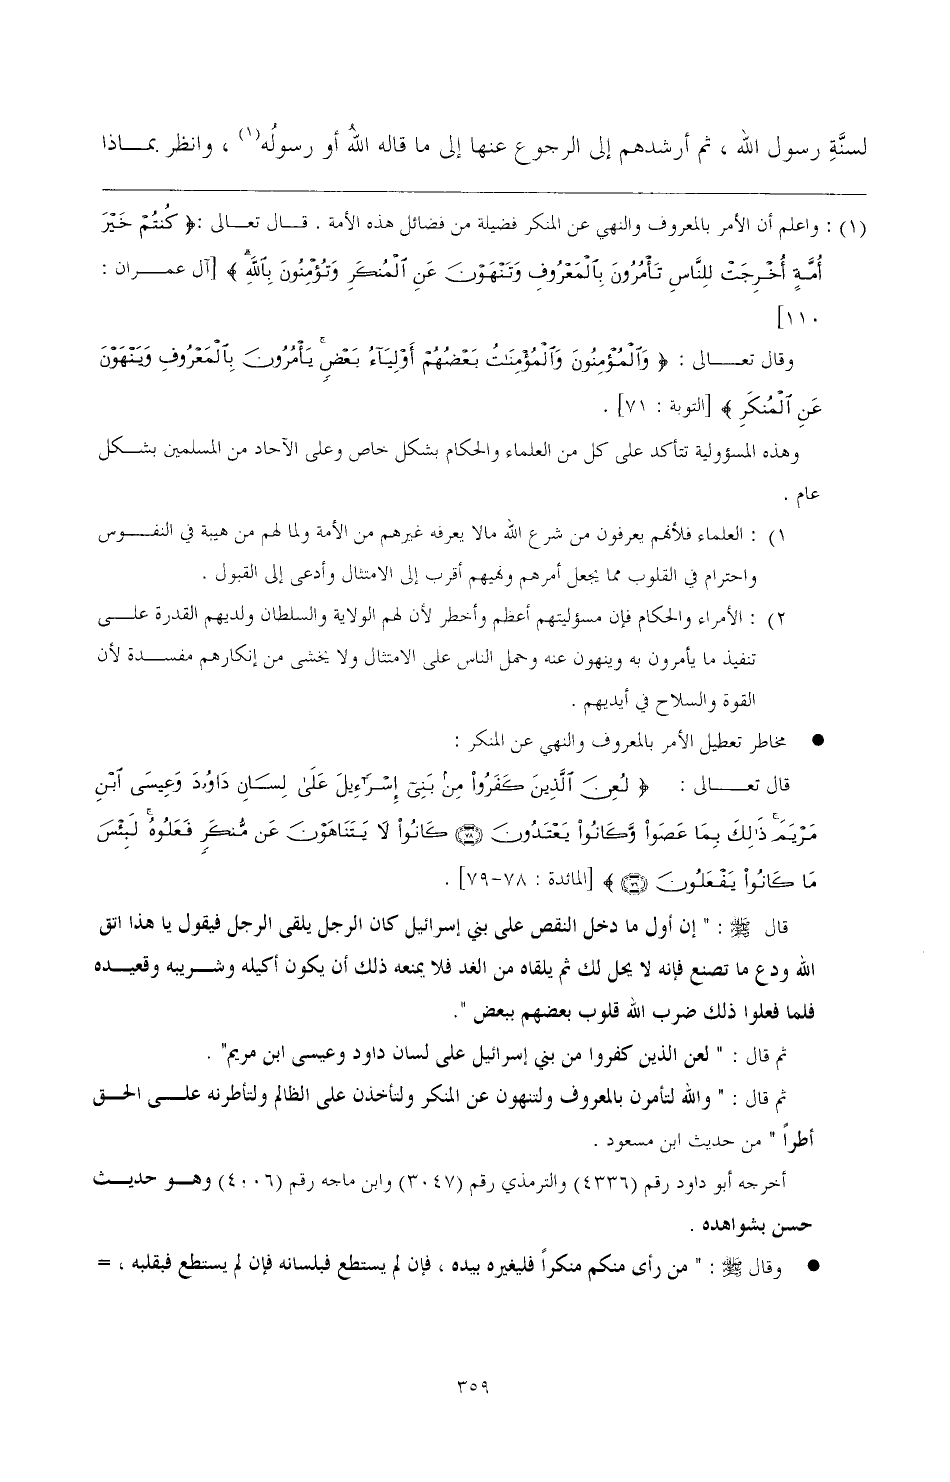 لسنَّةِ رسول الله ، ثم أرشدهم إلى الرجوع عنها إلى ما قاله اللهُ أو رسولُه(١) ، وانظر بمـــاذا
(١) : واعلم أن الأمر بالمعروف والنهي عن المنكر فضيلة من فضائل هذه الأمة . قـــال تعـــالى :﴿ كُنتُمْ خَيْرَ
أُمَّةٍ أُخْرِجَتْ لِلنَّاسِ تَأْمُرُونَ بِٱلْمَعْرُوفِ وَتَنْهَوْنَ عَنِ ٱلْمُنكَرِ وَتُؤْمِنُونَ بِٱللَّهِۗ ﴾ [آل عمـــران :
١١٠]
وقال تعـــالى : ﴿ وَٱلْمُؤْمِنُونَ وَٱلْمُؤْمِنَٰتُ بَعْضُهُمْ أَوْلِيَآءُ بَعْضٍۚ يَأْمُرُونَ بِٱلْمَعْرُوفِ وَيَنْهَوْنَ
عَنِ ٱلْمُنكَرِ ﴾ [التوبة : ٧١] .
وهذه المسؤولية تتأكد على كل من العلماء والحكام بشكل خاص وعلى الآحاد من المسلمين بشـــكل
عام .
١) : العلماء فلأنهم يعرفون من شرع الله مالا يعرفه غيرهم من الأمة ولما لهم من هيبة في النفـــوس
واحترام في القلوب مما يجعل أمرهم ونهيهم أقرب إلى الامتثال وأدعى إلى القبول .
٢) : الأمراء والحكام فإن مسؤليتهم أعظم وأخطر لأن لهم الولاية والسلطان ولديهم القدرة علـــى
تنفيذ ما يأمرون به وينهون عنه وحمل الناس على الامتثال ولا يخشى من إنكارهم مفســـدة لأن
القوة والسلاح في أيديهم .
● مخاطر تعطيل الأمر بالمعروف والنهي عن المنكر :
قال تعـــالى : ﴿ لُعِنَ ٱلَّذِينَ كَفَرُوا۟ مِنۢ بَنِىٓ إِسْرَٰٓءِيلَ عَلَىٰ لِسَانِ دَاوُۥدَ وَعِيسَى ٱبْنِ
مَرْيَمَۚ ذَٰلِكَ بِمَا عَصَوا۟ وَّكَانُوا۟ يَعْتَدُونَ ﴿٧٨﴾ كَانُوا۟ لَا يَتَنَاهَوْنَ عَن مُّنكَرٍ فَعَلُوهُۚ لَبِئْسَ
مَا كَانُوا۟ يَفْعَلُونَ ﴿٧٩﴾ ﴾ [المائدة : ٧٨-٧٩] .
قال ﷺ : " إن أول ما دخل النقص على بني إسرائيل كان الرجل يلقى الرجل فيقول يا هذا اتق
الله ودع ما تصنع فإنه لا يحل لك ثم يلقاه من الغد فلا يمنعه ذلك أن يكون أكيله وشـــريبه وقعيـــده
فلما فعلوا ذلك ضرب الله قلوب بعضهم ببعض ".
ثم قال : " لعن الذين كفروا من بني إسرائيل على لسان داود وعيسى ابن مريم" .
ثم قال : " والله لتأمرن بالمعروف ولتنهون عن المنكر ولتأخذن على الظالم ولتأطرنه علـــى الحـــق
أطراً " من حديث ابن مسعود .
أخرجه أبو داود رقم (٤٣٣٦) والترمذي رقم (٣٠٤٧) وابن ماجه رقم (٤٠٠٦) وهـــو حديـــث
حسن بشواهده .
● وقال ﷺ : " من رأى منكم منكراً فليغيره بيده ، فإن لم يستطع فبلسانه فإن لم يستطع فبقلبه ، =
٣٥٩